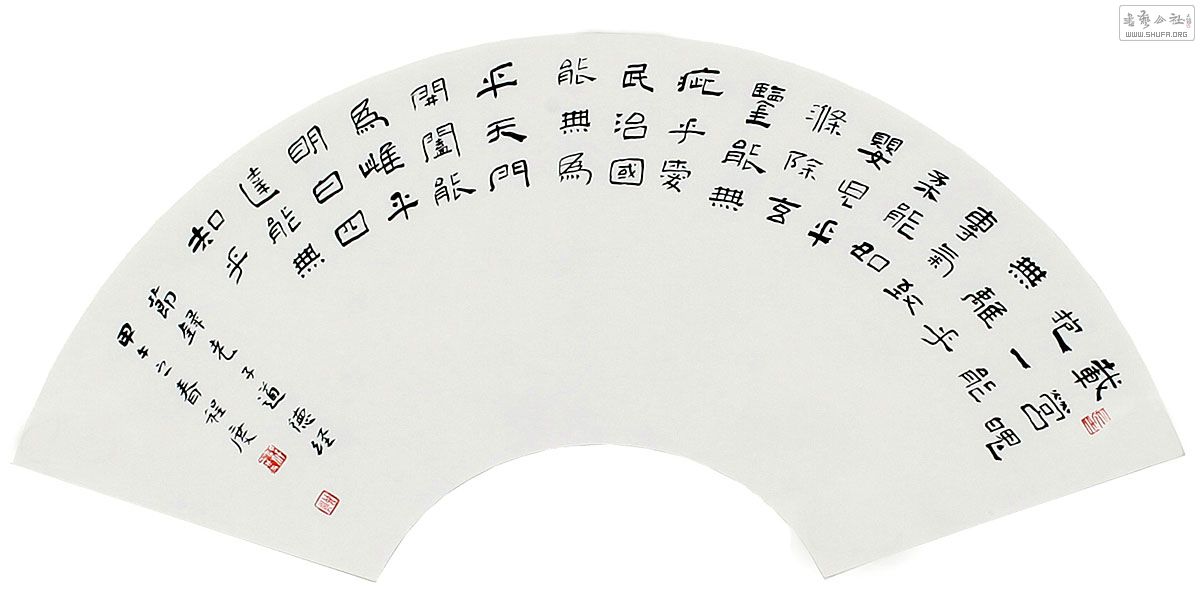 載營魄
抱一能
無離乎
專氣致
柔能如
嬰兒乎
滌除玄
鑒能無
疵乎愛
民治國
能無為
乎天門
開闔能
為雌乎
明白四
達能無
知乎
節録老子道德经
甲午立春程度
書藝公社
WWW.SHUFA.ORG